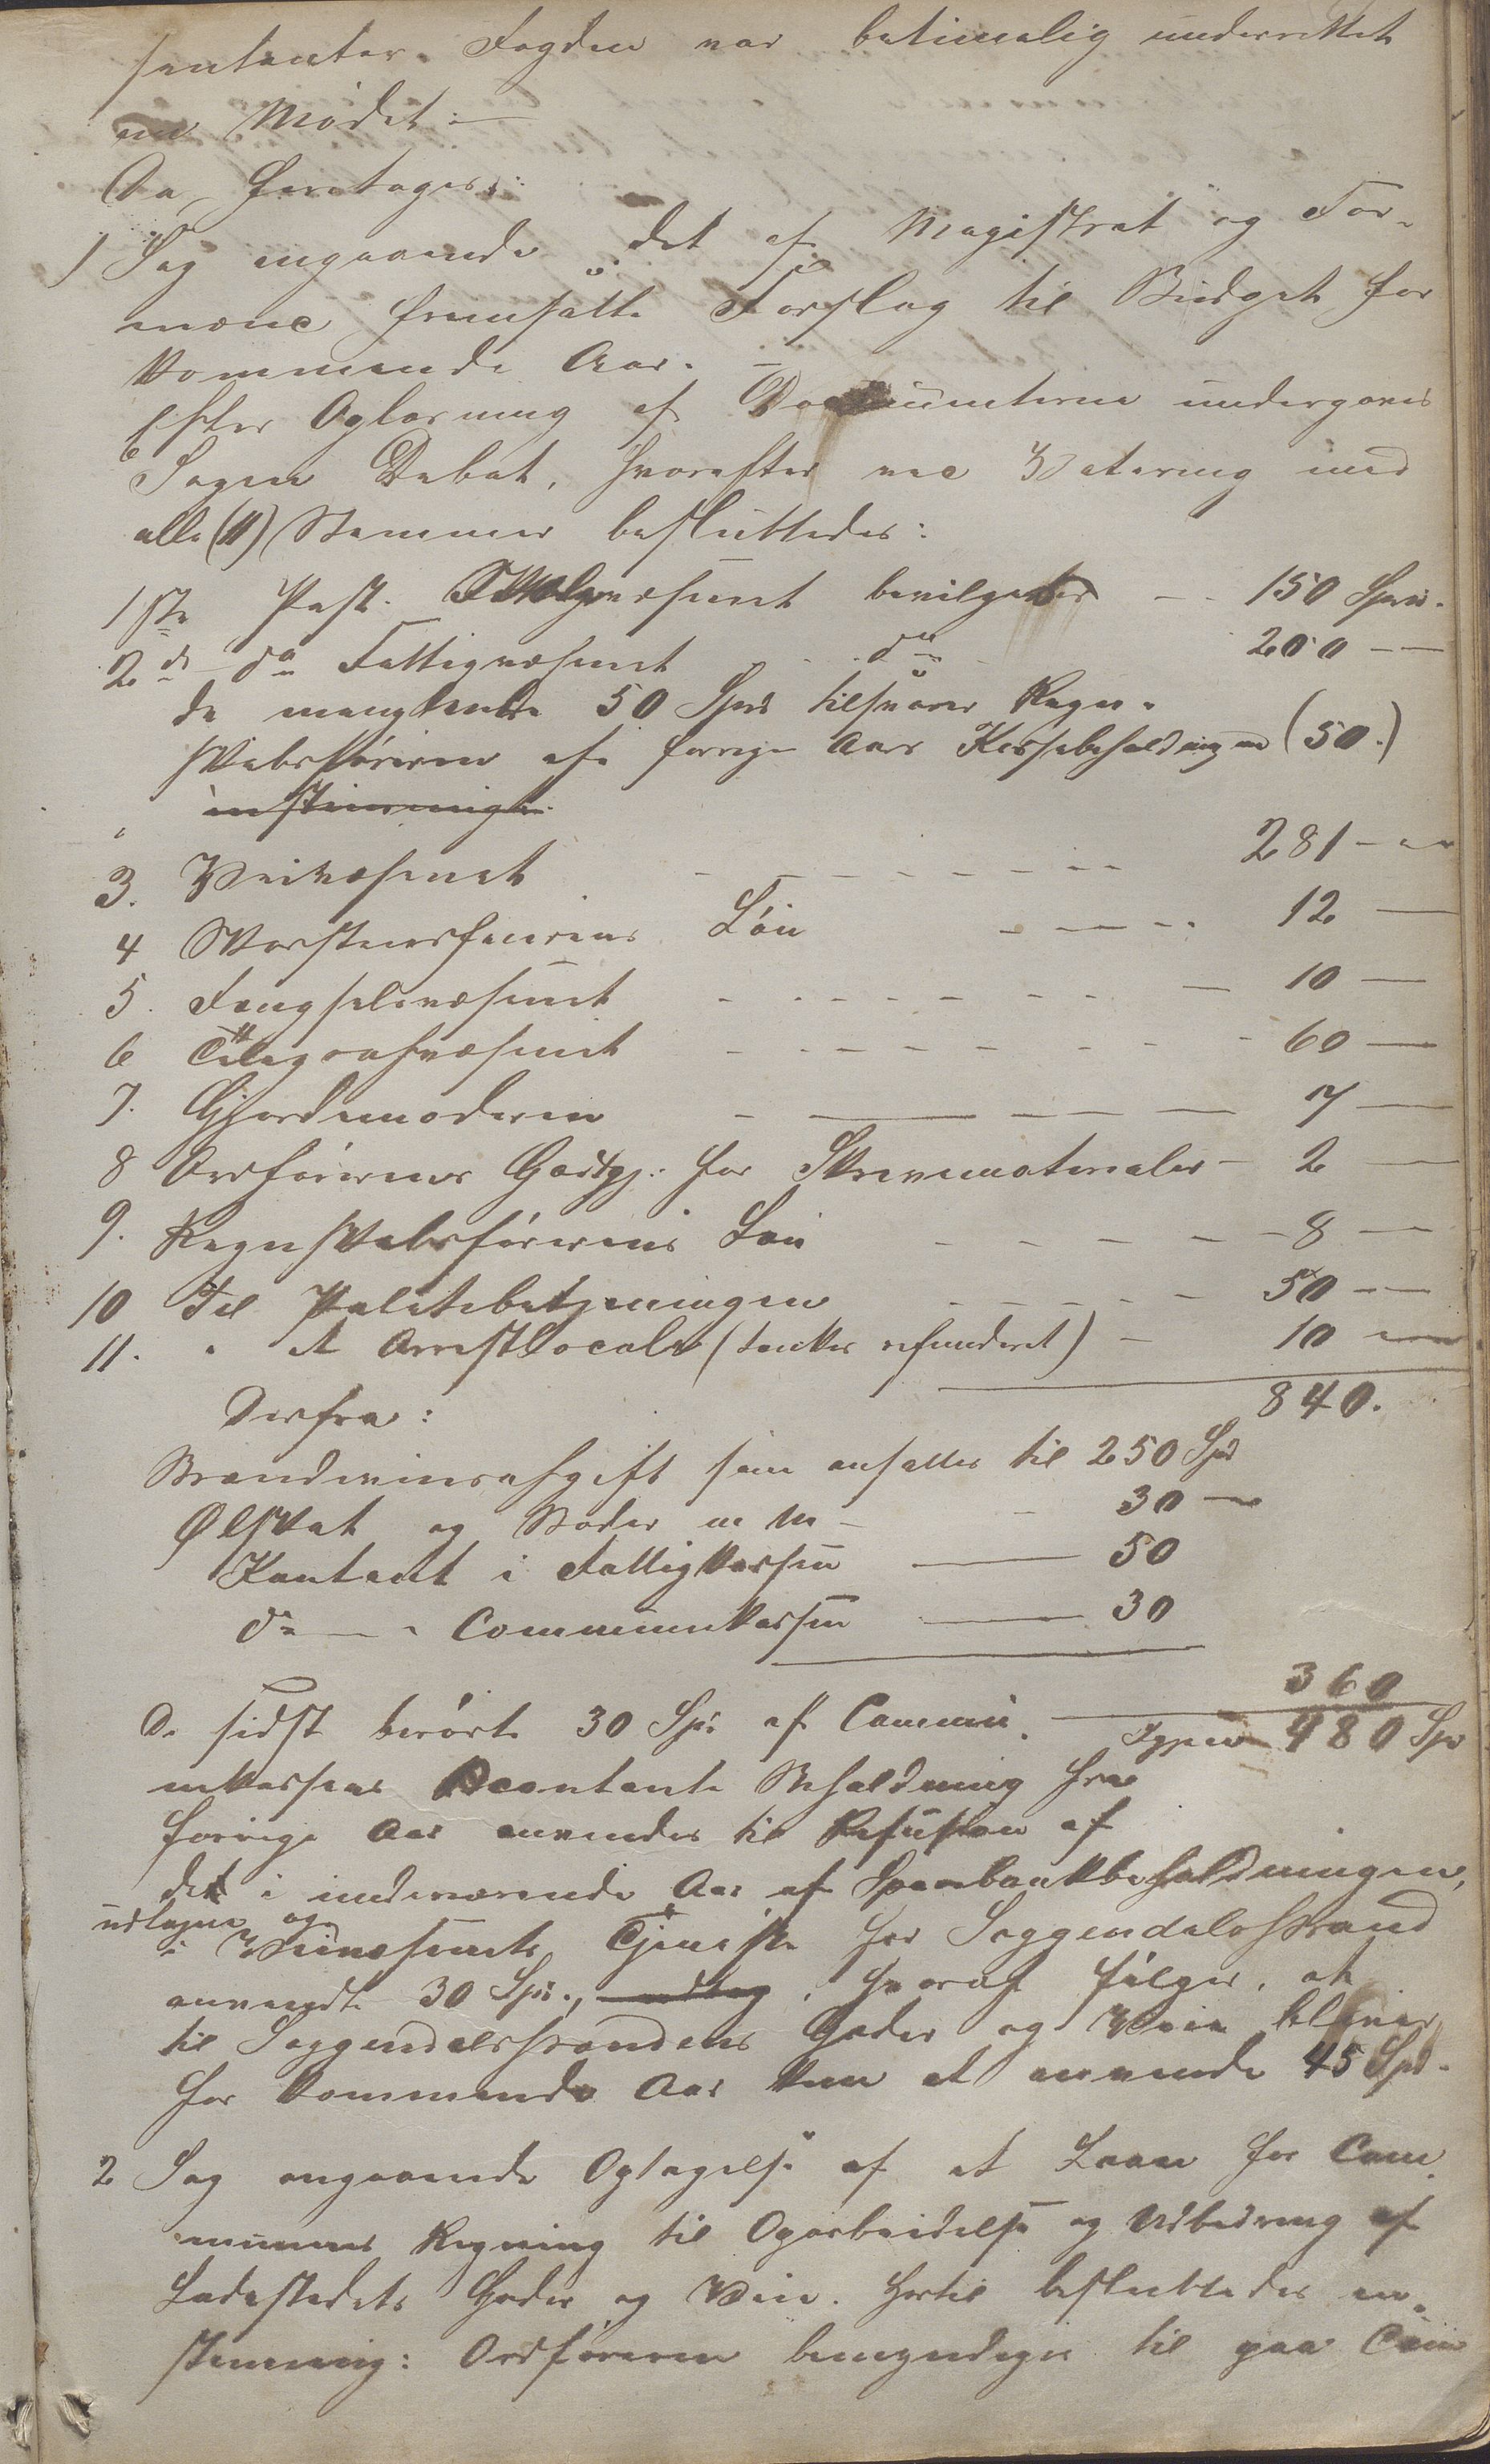 sentanter. Fogden var betimelig underrettet
om Mødet :—
Da foretoges:
1 Sag angaaende det af Magistrat og For-
mænd fremsatte Forslag til Budget for
kommende Aar. —
Efter Oplæsning af Documenterne undergaves
Sagen Debat, hvorefter ved Votering med
alle (11) Stemmer besluttedes:
1ste Post. Skolevæsenet bevilgedes — 150 Spd.
2d do Fattigvæsenet do 200 —
de manglende 50 Spd tilsvarer Regn-
skabsføreren af forrige Aars Kassebeholdning (50.)
enstemmig.
3. Veivæsenet 281 —
4 Skorsteensfeierens Løn 12 —
5. Fængselsvæsenet 10 —
6 Telegrafvæsenet 60 —
7. Gjordemoderen 7 —
8 Ordførerens Godtgj: for Skrivematerialer — 2 —
9. Regnskabsførerens Løn 8 —
10 Til Politibetjeningen 50 —
11. " et Arrestlocale (tænkes refunderet) — 10 —
840.
Derfra:
Brændevinsafgift som ansættes til 250 Spd
Ølskat og Bøder m m — 30 —
Kontant i Fattigkassen — 50
do — " Communekassen — 30
360
De sidst berørte 30 Spd af Commu- Igjen 480 Spd
nekassens contante Beholdning fra
forrige Aar anvendes til Refusion af
det i indeværende Aar af Sparebankbeholdningen,
udlagte og
i Veivæsenets Tjeneste for Soggendalsstrand
anvendte 30 Spd., udlæg, hvoraf følger, at
til Soggendalsstrandens Gader og Veie bliver
for kommende Aar kun at anvende 45 Spd.
2 Sag angaaende Optagelse af et Laan for Com-
munens Regning til Oparbeidelse og Udbedring af
Ladestedets Gader og Veie. Hertil besluttedes en-
stemmig: Ordføreren bemyndiges til paa Com